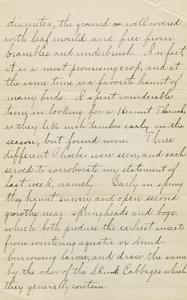 diameter, the ground so well covered
with leaf mould and free from
brambles and underbrush. In fact
it is a most promising crop, and at
the same time is a favorite haunt of
many birds. I spent considerable
time in looking for a Hermit Thrush
as they like such timber early in the
season, but found none. Three
different Phoebes were seen, and each
served to corroborate my statement of
last week, namely: Early in spring
they haunt sunny and open second
growths near springheads and bogs,
which both produce the earliest insects
from wintering aquatic or mud-
burrowing larvae, and draw the same
by the odor of the Skunk Cabbages which
they generally contain.